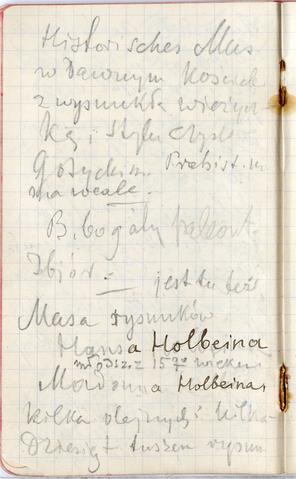 Historisches Mus
w dawnym kościele
z wysmukłą wieżycz
ką i stylu czysto
gotyckim. Prehist. m
ma wcale.
B. bogaty paleont.
Zbiór. — jest tu też
Masa rysunków
Hansa Holbeina
młodsz. z 15 go wieku
Madonna Holbeina,
kilka olejnych i kilka
dziesiąt tuszem rysun